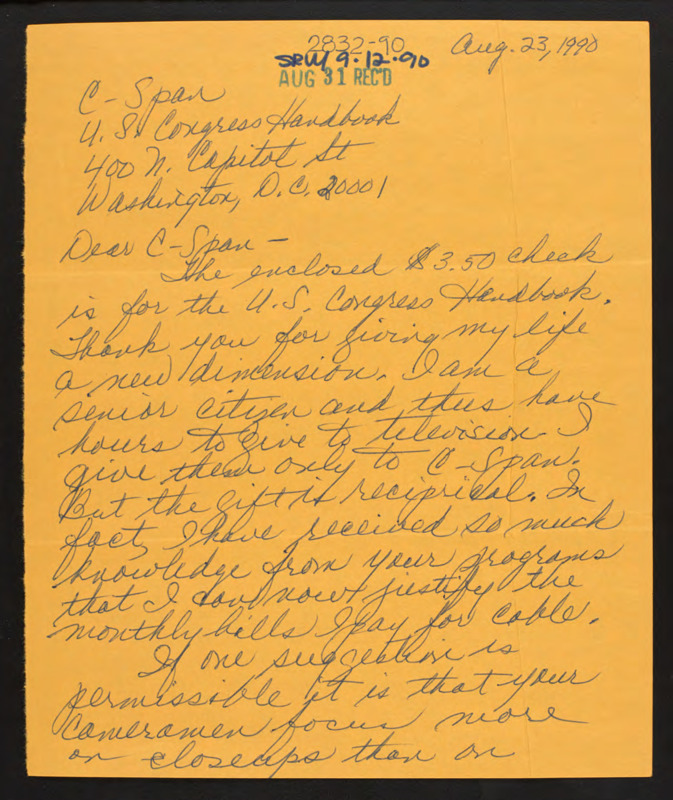 2832-90
Aug. 23, 1990
SRW 9·12·90
AUG 31 REC'D
C-Span
U.S. Congress Handbook
400 N. Capitol St
Washington, D.C. 20001
Dear C-Span -
The enclosed $3.50 check
is for the U.S. Congress Handbook.
Thank you for giving my life
a new dimension. I am a
senior citizen and thus have
hours to give to television I
give them only to C-Span.
But the gift is reciprical. In
fact, I have received so much
knowledge from your programs
that I can now justify the
monthly bills I pay for cable.
If one suggestion is
permissible it is that your
cameramen focus more
on closeups than on